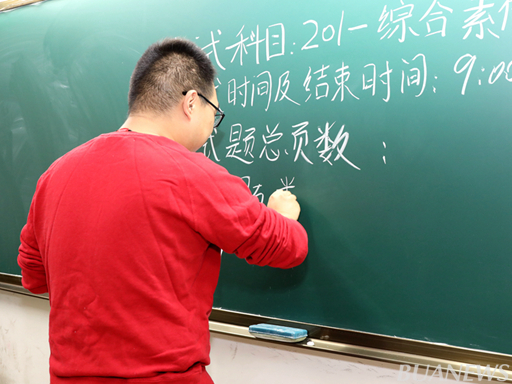 式科目:201-综合素
时间及结束时间:9:00
试题总页数:
BUAANEWS